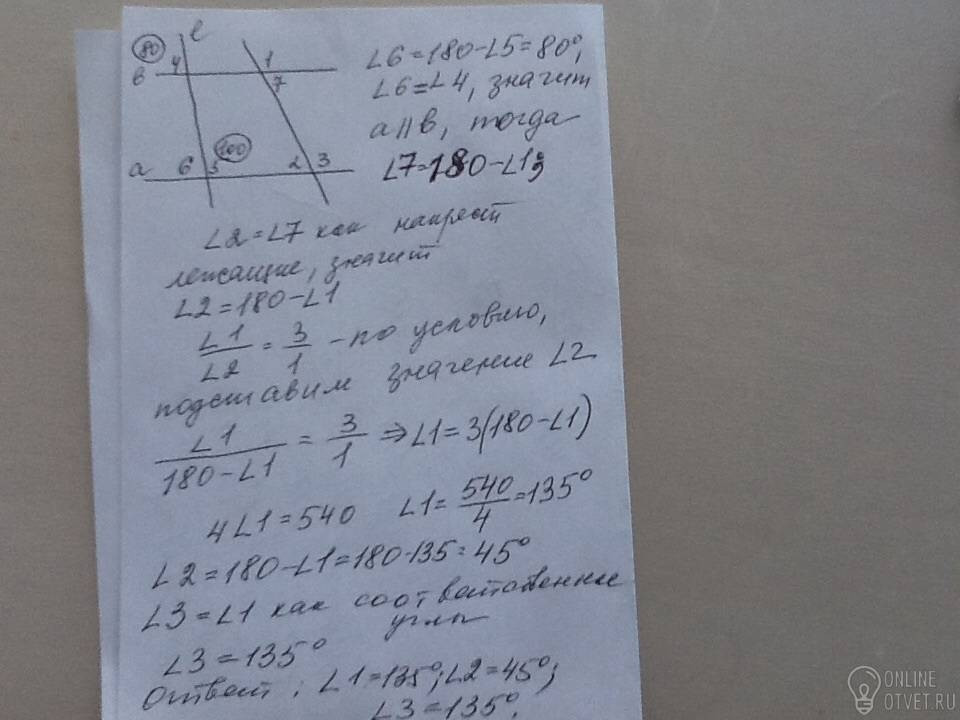 80 4 l
в 1
7
100
а 6 5 2 3
∠6=180-∠5=80°,
∠6=∠4, значит
а||в, тогда
∠7=180-∠1;
∠2=∠7 как накрест
лежащие, значит
∠2=180-∠1
∠1/∠2 = 3/1 - по условию,
подставим значение ∠2
∠1/(180-∠1) = 3/1 ⇒ ∠1=3(180-∠1)
4∠1=540 ∠1=540/4=135°
∠2=180-∠1=180-135=45°
∠3=∠1 как соответственные
углы
∠3=135°
Ответ: ∠1=135°; ∠2=45°;
∠3=135°.
ONLINE
OTVET.RU